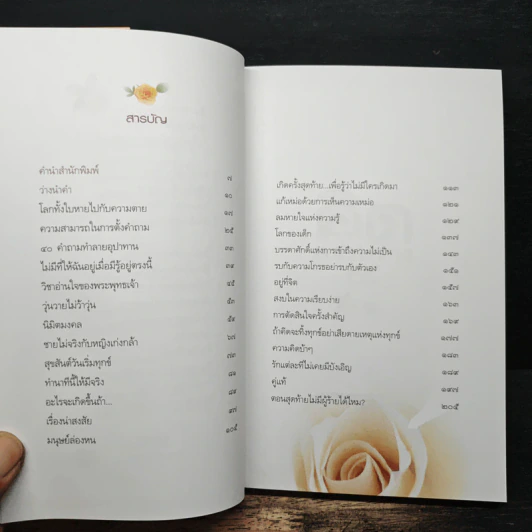 สารบัญ
คำนำสำนักพิมพ์ ๗
ว่างนำคำ ๑๐
โลกทั้งใบหายไปกับความตาย ๑๗
ความสามารถในการตั้งคำถาม ๒๕
๔๐ คำถามทำลายอุปาทาน ๓๓
ไม่มีที่ให้ฉันอยู่เมื่อมีรู้อยู่ตรงนี้ ๓๙
วิชาอ่านใจของพระพุทธเจ้า ๔๕
วุ่นวายไม่ว้าวุ่น ๕๓
นิมิตมงคล ๕๙
ชายไม่จริงกับหญิงเก่งกล้า ๖๗
สุขสันต์วันเริ่มทุกข์ ๗๓
ทำนาทีนี้ให้มีจริง ๘๑
อะไรจะเกิดขึ้นถ้า... ๘๙
เรื่องน่าสงสัย ๙๗
มนุษย์ล่องหน ๑๐๕
เกิดครั้งสุดท้าย...เพื่อรู้ว่าไม่มีใครเกิดมา ๑๑๓
แก้เหม่อด้วยการเห็นความเหม่อ ๑๒๑
ลมหายใจแห่งความรู้ ๑๒๙
โลกของเด็ก ๑๓๗
บรรดาศักดิ์แห่งการเข้าถึงความไม่เป็น ๑๔๓
รบกับความโกรธอย่ารบกับตัวเอง ๑๕๑
อยู่ที่จิต ๑๕๗
สงบในความเรียบง่าย ๑๖๓
การตัดสินใจครั้งสำคัญ ๑๖๙
ถ้าคิดจะทิ้งทุกข์อย่าเสียดายเหตุแห่งทุกข์ ๑๗๗
ความคิดบ้าๆ ๑๘๓
รักแต่ละทีไม่เคยมีบังเอิญ ๑๘๙
คู่แท้ ๑๙๗
ตอนสุดท้ายไม่มีผู้ร้ายได้ไหม? ๒๐๕